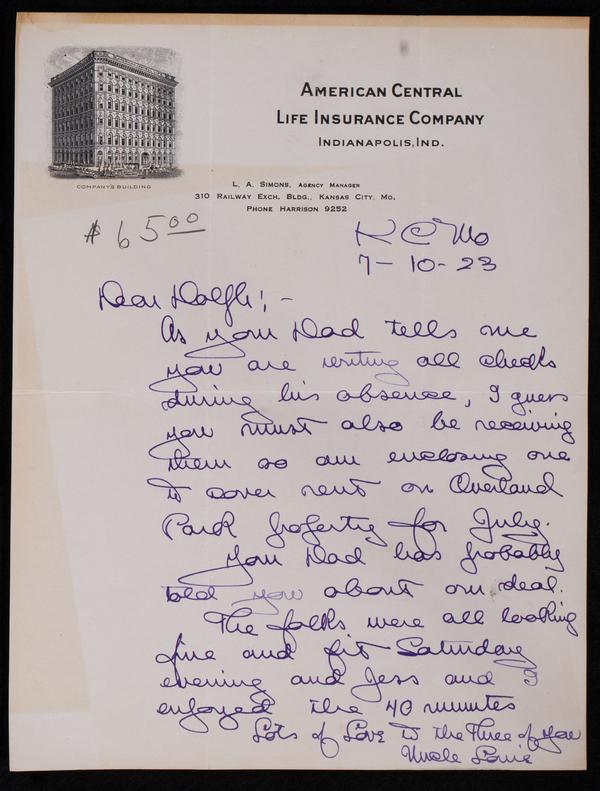 AMERICAN CENTRAL
LIFE INSURANCE COMPANY
INDIANAPOLIS, IND.
COMPANY'S BUILDING
L. A. SIMONS, AGENCY MANAGER
310 RAILWAY EXCH. BLDG., KANSAS CITY, MO.
PHONE HARRISON 9252
$65.00
K C Mo
7-10-23
Dear Dolph:-
As your Dad tells me
you are writing all checks
during his absence, I guess
you must also be receiving
them so am enclosing one
to cover rent on Overland
Park property for July.
Your Dad has probably
told you about our deal.
The folks were all looking
fine and fit Saturday
evening and Jess and I
enjoyed the 40 minutes
Lots of Love to the three of you
Uncle Louie